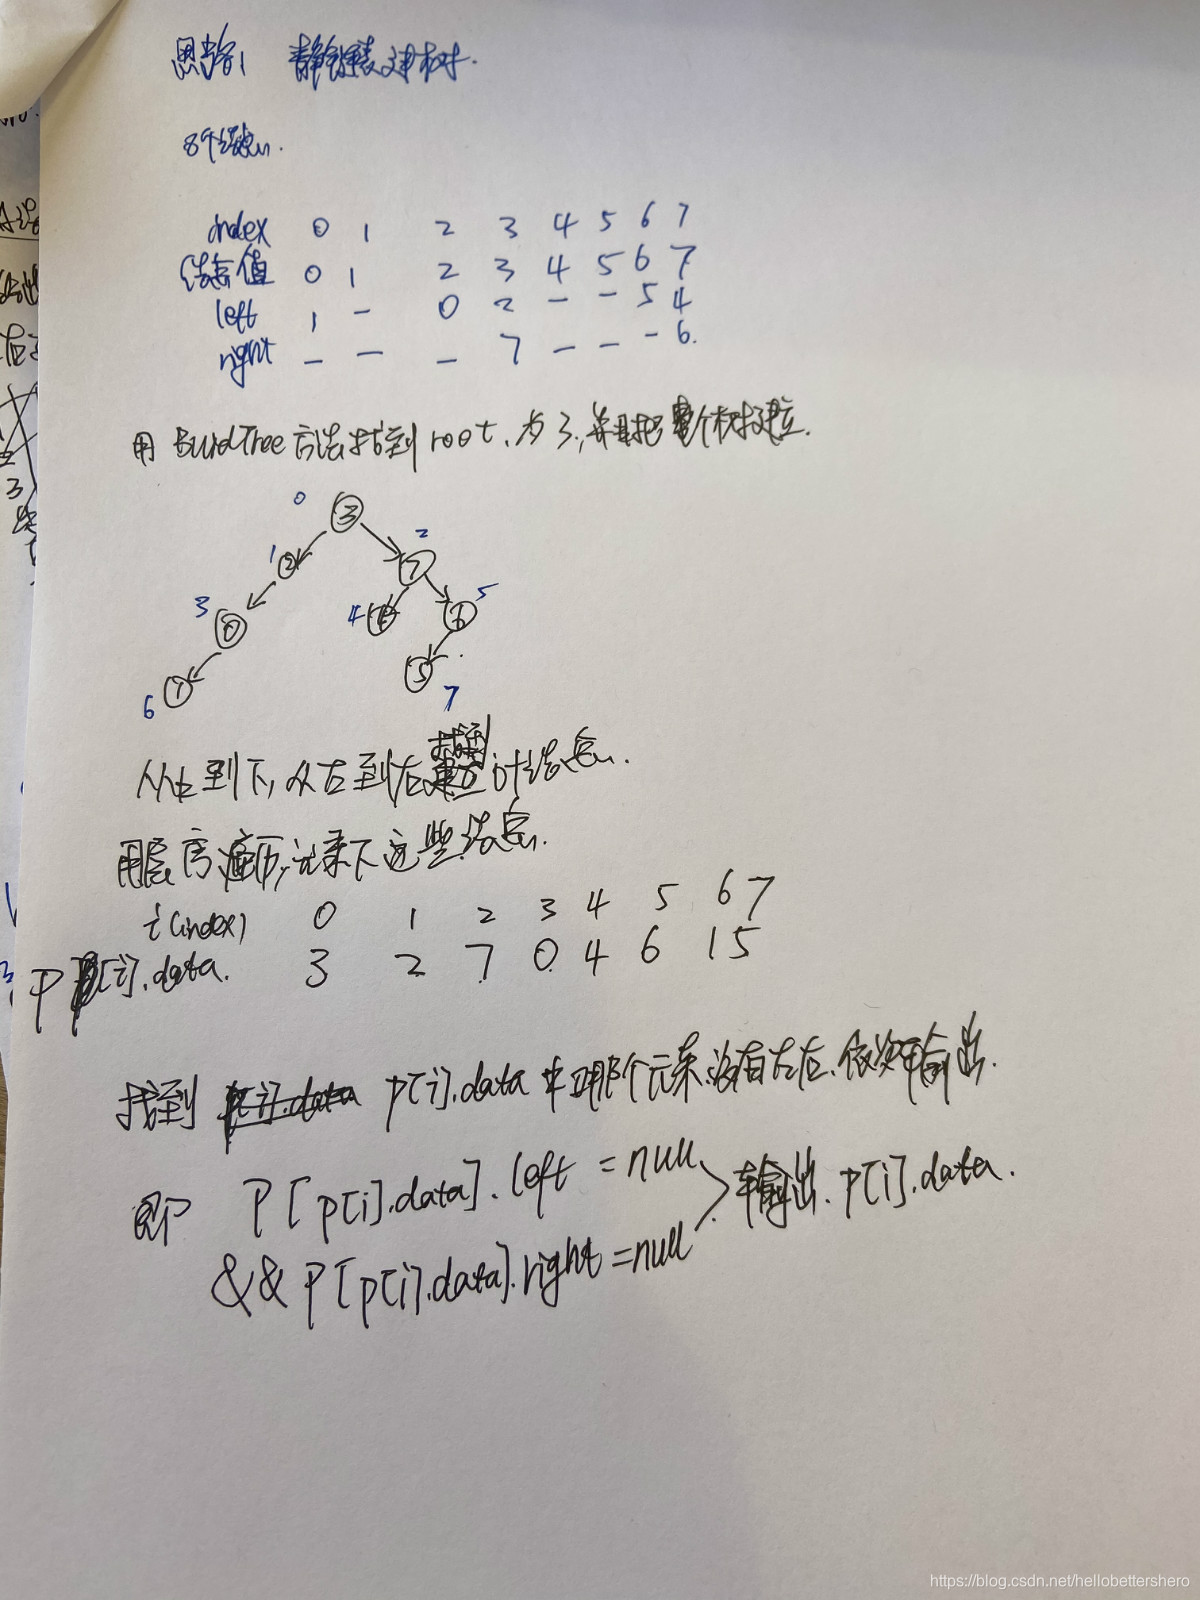 思路1 静态链表建树.
8个结点.
index 0 1 2 3 4 5 6 7
结点值 0 1 2 3 4 5 6 7
left 1 - 0 2 - - 5 4
right - - - 7 - - - 6.
用 BuildTree 方法找到 root, 为 3, 并且把整个树建立.
0 3
1 2 7 2
3 0 4 4 6 5
6 1 5 7
从上到下, 从左到右 找到 叶结点.
用层序遍历, 记录下这些结点.
i(index) 0 1 2 3 4 5 6 7
P[i].data. 3 2 7 0 4 6 1 5
找到 p[i].data 中哪个元素没有左右. 依次输出.
即 P[p[i].data].left = null
&& P[p[i].data].right = null > 输出. p[i].data.
https://blog.csdn.net/hellobettershero